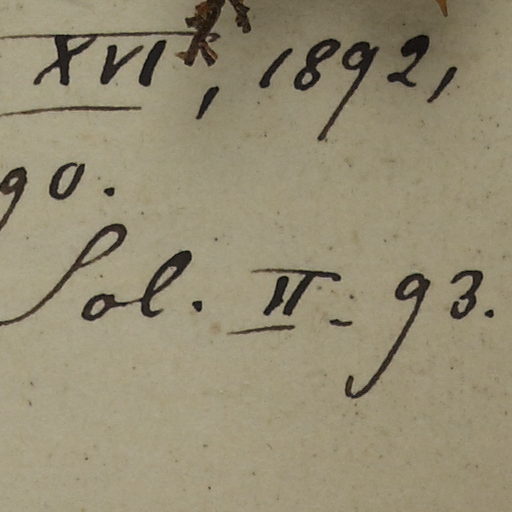 XVI, 1892,
90.
Sol. II - 93.